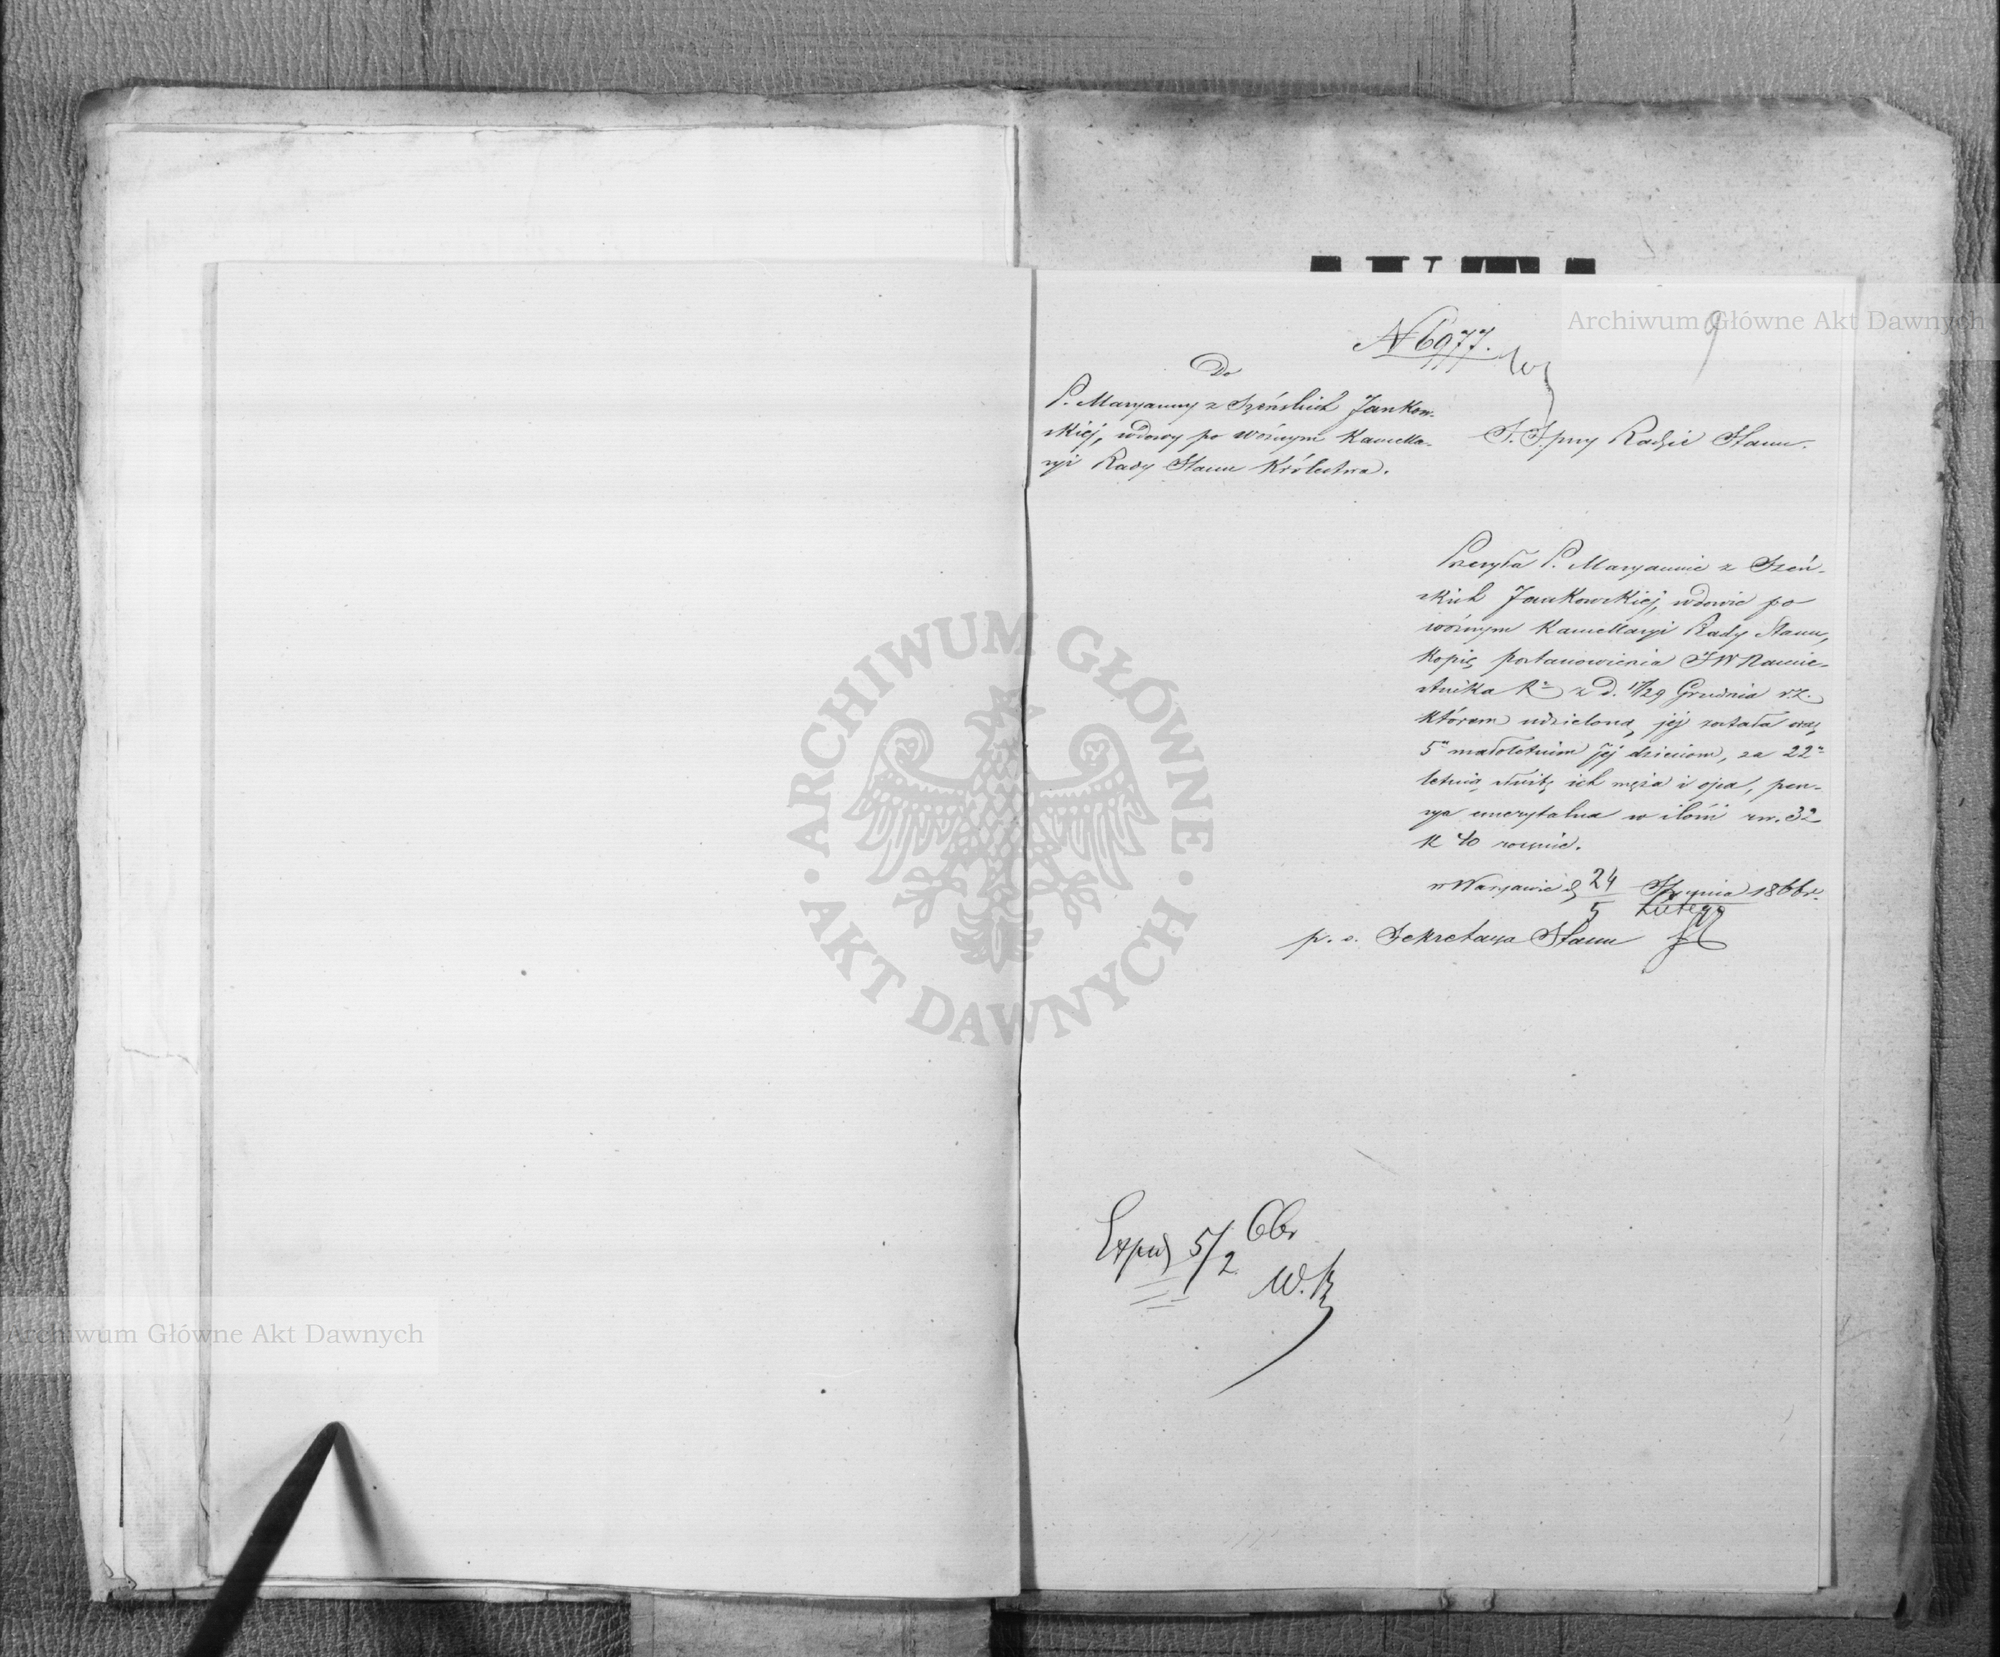 Archiwum Główne Akt Dawnych
9
N 6977.
Do
P. Maryanny z Szeńskich Jankow-
skiej, wdowy po woźnym Kancella-
ryi Rady Stanu Królestwa.
S. S. przy Radzie Stanu.
Przesyła P. Maryannie z Szeń-
skich Jankowskiej, wdowie po
woźnym Kancellaryi Rady Stanu,
kopię postanowienia JW Namie-
stnika K. z d. 17/29 Grudnia r.z.
którem udzieloną jej została oraz
5 małoletnim jej dzieciom, za 22
letnią służbę ich męża i ojca, pen-
sya emerytalna w ilości rs. 32
k 40 rocznie.
w Warszawie d 24/5 Stycznia/Lutego 1866 r.
p. o. Sekretarza Stanu
Exped 5/2 66 r
W. K
ARCHIWUM GŁÓWNE AKT DAWNYCH
Archiwum Główne Akt Dawnych